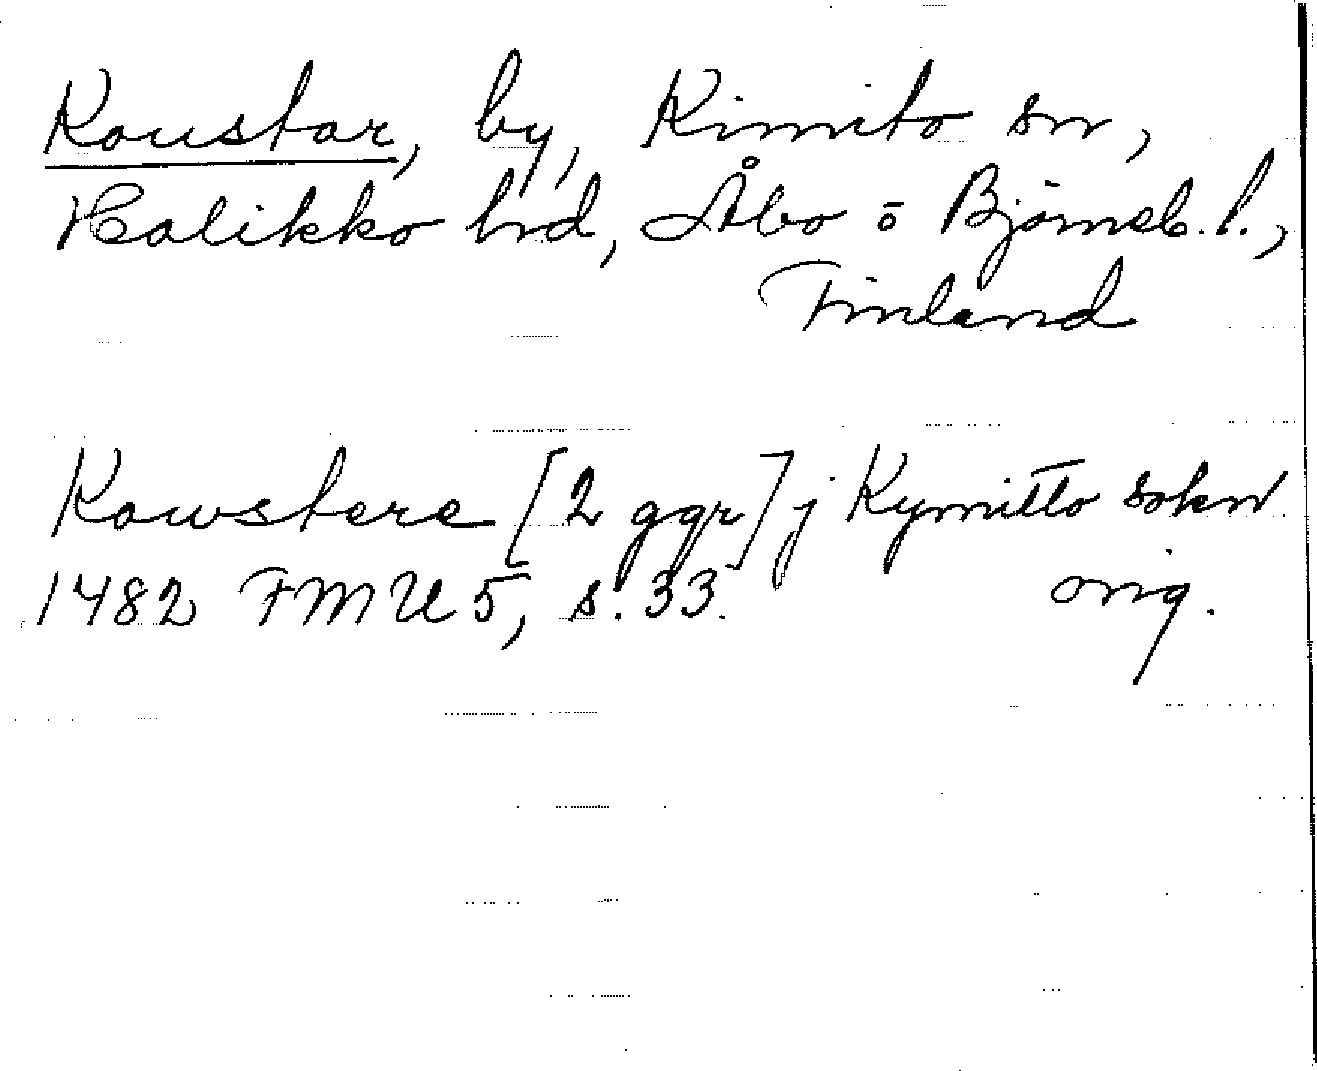 Koustar, by, Kimito sn,
Halikko hrd, Åbo o Björneb. l.,
Finland
Kowstere [2 ggr] j Kymitto sokn
1482 FMU 5, s. 33. orig.